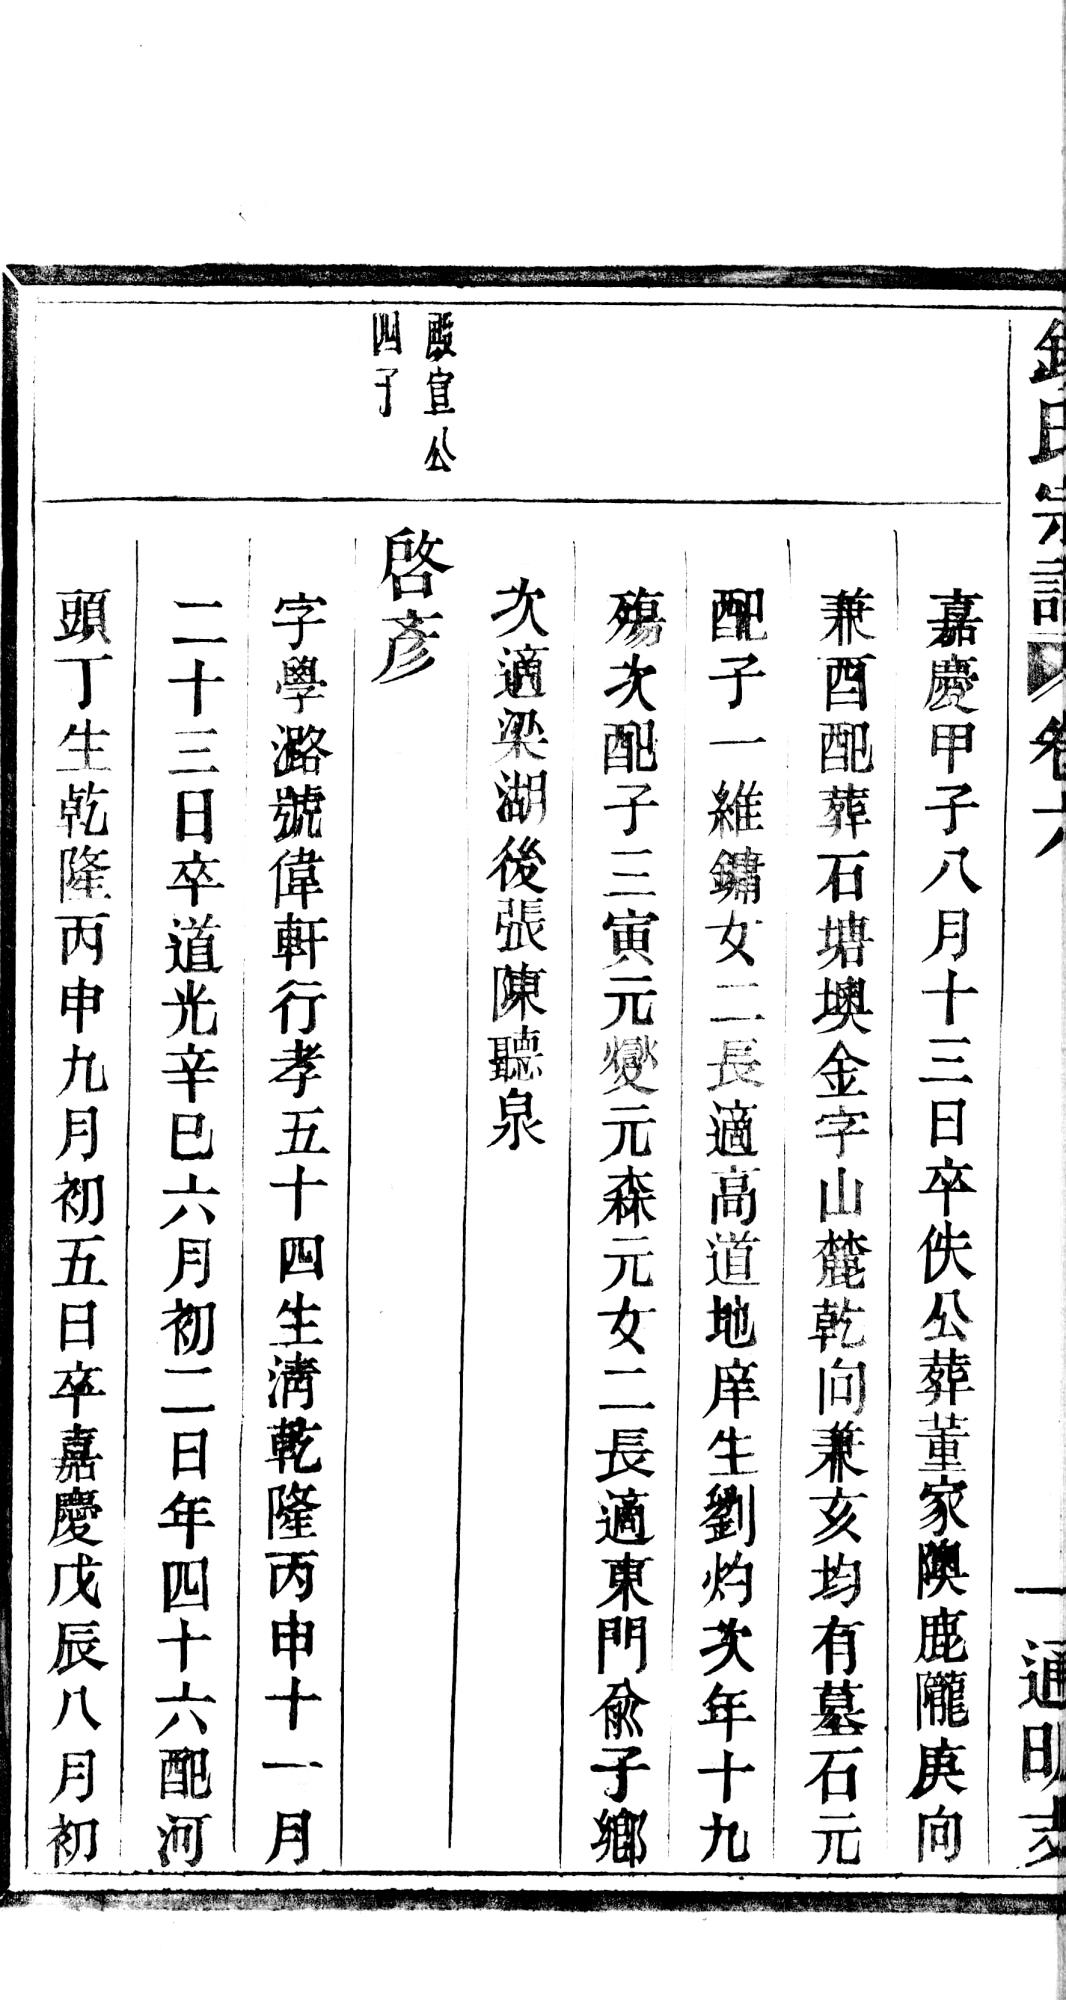 氏宗譜 卷六 一 通明支
嘉慶甲子八月十三日卒佚公葬董家隩鹿隴庚向
兼酉配葬石塘墺金字山麓乾向兼亥均有墓石元
配子一維鏞女二長適高道地庠生劉灼次年十九
殤次配子三寅元元燮元森元女二長適東門俞子鄉
次適梁湖後張陳聽泉
殿宣公
四子
啓彥
字學潞號偉軒行孝五十四生淸乾隆丙申十一月
二十三日卒道光辛巳六月初二日年四十六配河
頭丁生乾隆丙申九月初五日卒嘉慶戊辰八月初